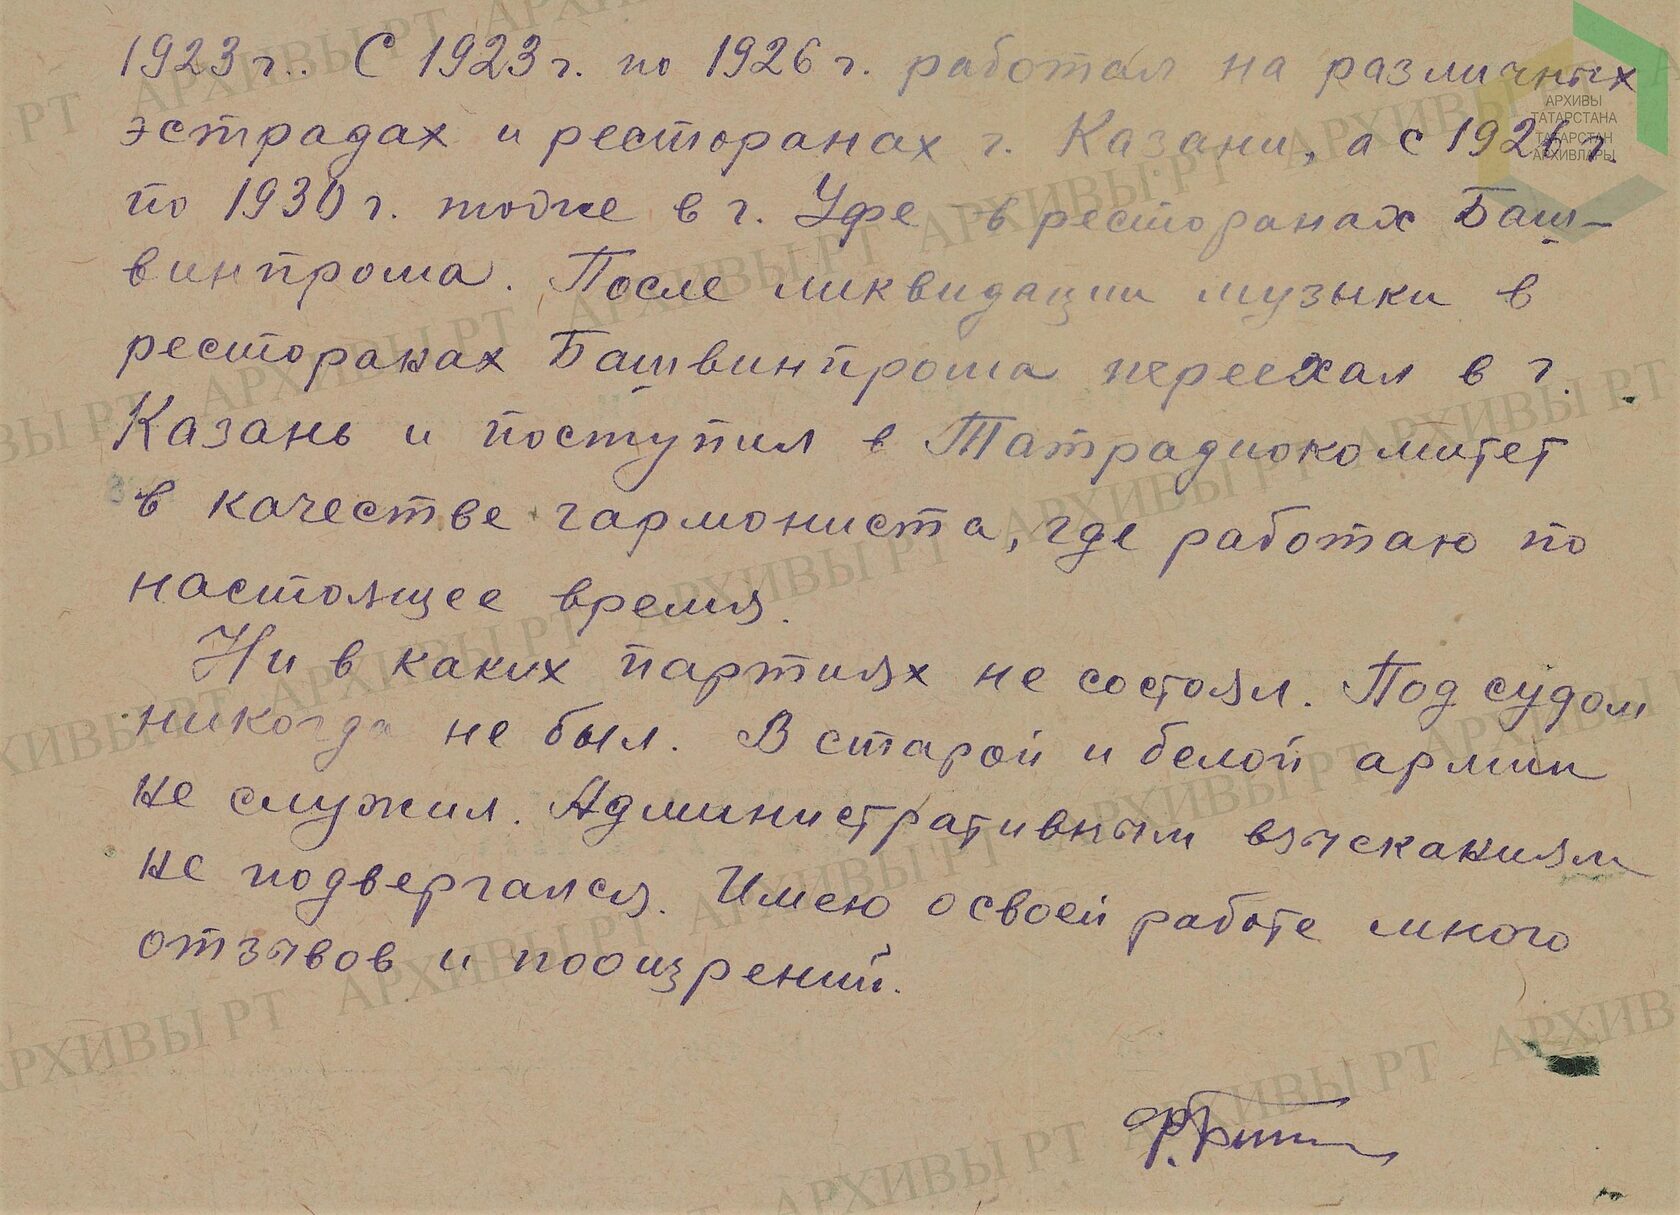 1923 г.. С 1923 г. по 1926 г. работал на различных
эстрадах и ресторанах г. Казани, а с 1926 г.
по 1930 г. тоже в г. Уфе в ресторанах Баш-
винпрома. После ликвидации музыки в
ресторанах Башвинпрома переехал в г.
Казань и поступил в Татрадиокомитет
в качестве гармониста, где работаю по
настоящее время.
Ни в каких партиях не состоял. Под судом
никогда не был. В старой и белой армии
не служил. Административным взысканиям
не подвергался. Имею о своей работе много
отзывов и поощрений.
АРХИВЫ
ТАТАРСТАНА
ТАТАРСТАН
АРХИВЛАРЫ
АРХИВЫ РТ